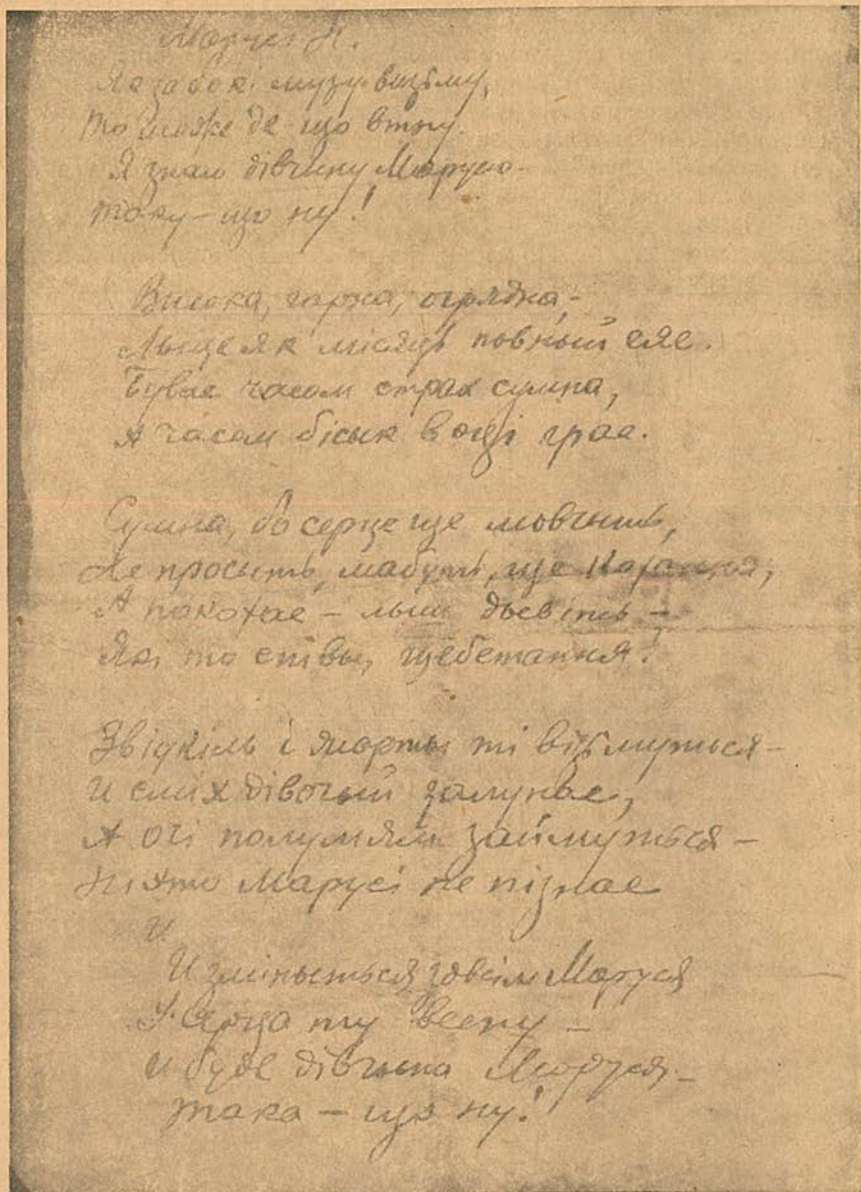 Марусі Н.
Як за бокі музу визьму,
то може де-що втну.
Я знаю дівчину Марусю-
таку-що ну!
Висока, гарна, огрядна,-
Лыце як місяць повный сяє.
Буває часом страх сумна,
А часом бісык в оці грає.
Сумна, бо серце ще мовчыть,
Не просыть, мабуть, ще Коханья,
А покохає - лыш дывіть-
Які то співы, щебетання.
Звідкіль і жарты ті візмуться-
И сміх дівочый залунає,
А очі полумям займуться-
Ніхто Марусі не пізнає
И
И зміныться зовсім Маруся
У ту весну-
И буде дівчына Маруся-
така - що ну!